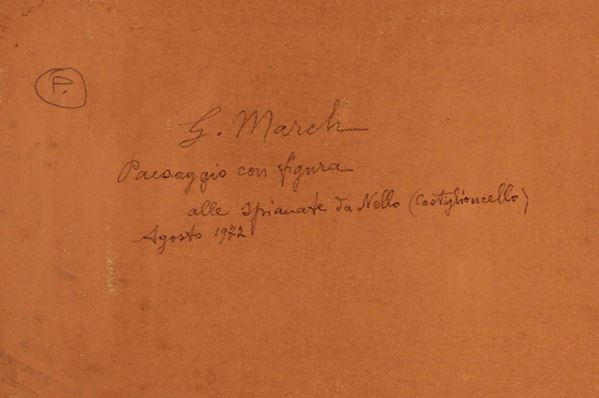 P.
G. March
Paesaggio con figura
alle spianate da Nello (Castiglioncello)
Agosto 1972